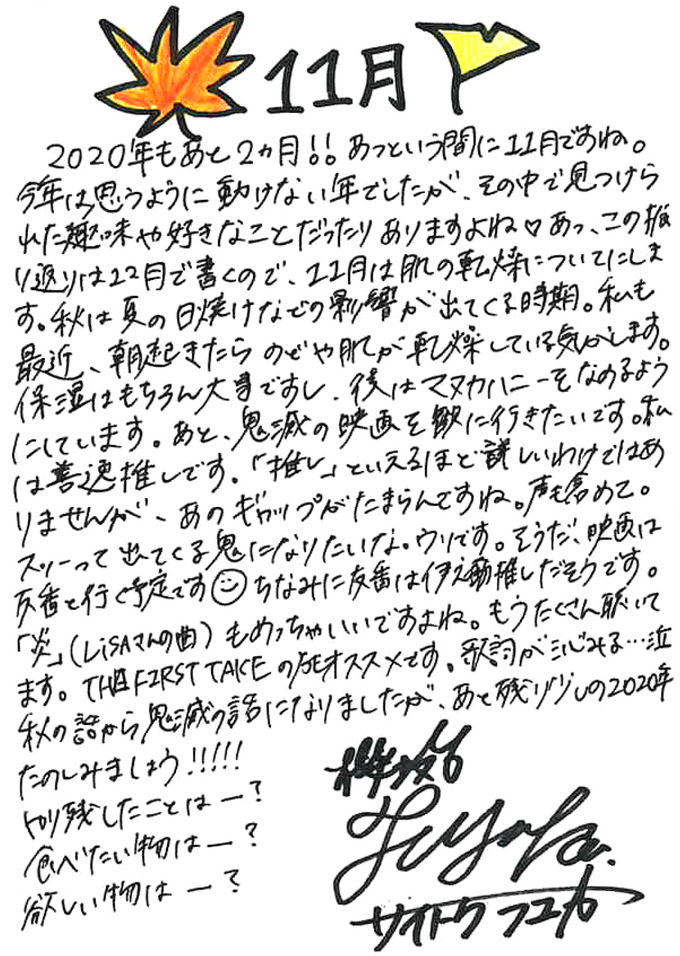 11月
2020年もあと2ヵ月!! あっという間に11月ですね。
今年は思うように動けない年でしたが、その中で見つけら
れた趣味や好きなことだったりありますよね♡ あっ、この振
り返りは12月で書くので、11月は肌の乾燥についてにしま
す。秋は夏の日焼けなどの影響が出てくる時期。私も
最近、朝起きたらのどや肌が乾燥している気がします。
保湿はもちろん大事ですし、夜はマヌカハニーをなめるよう
にしています。あと、鬼滅の映画を観に行きたいです。私
は善逸推しです。「推し」といえるほど詳しいわけではあ
りませんが、あのギャップがたまらんですね。声も含めて。
スリーって出てくる鬼になりたいな。ウソです。そうだ、映画は
友香と行く予定です☺ ちなみに友香は伊之助推しだそうです。
「炎」(LiSAさんの曲)もめっちゃいいですよね。もうたくさん聴いて
ます。THE FIRST TAKEのがオススメです。歌詞がしみる…泣
秋の話から鬼滅の話になりましたが、あと残り少しの2020年
たのしみましょう!!!!!
やり残したことはー?
食べたい物はー?
欲しい物はー?
櫻坂46
Fuyuka.
サイトウフユカ